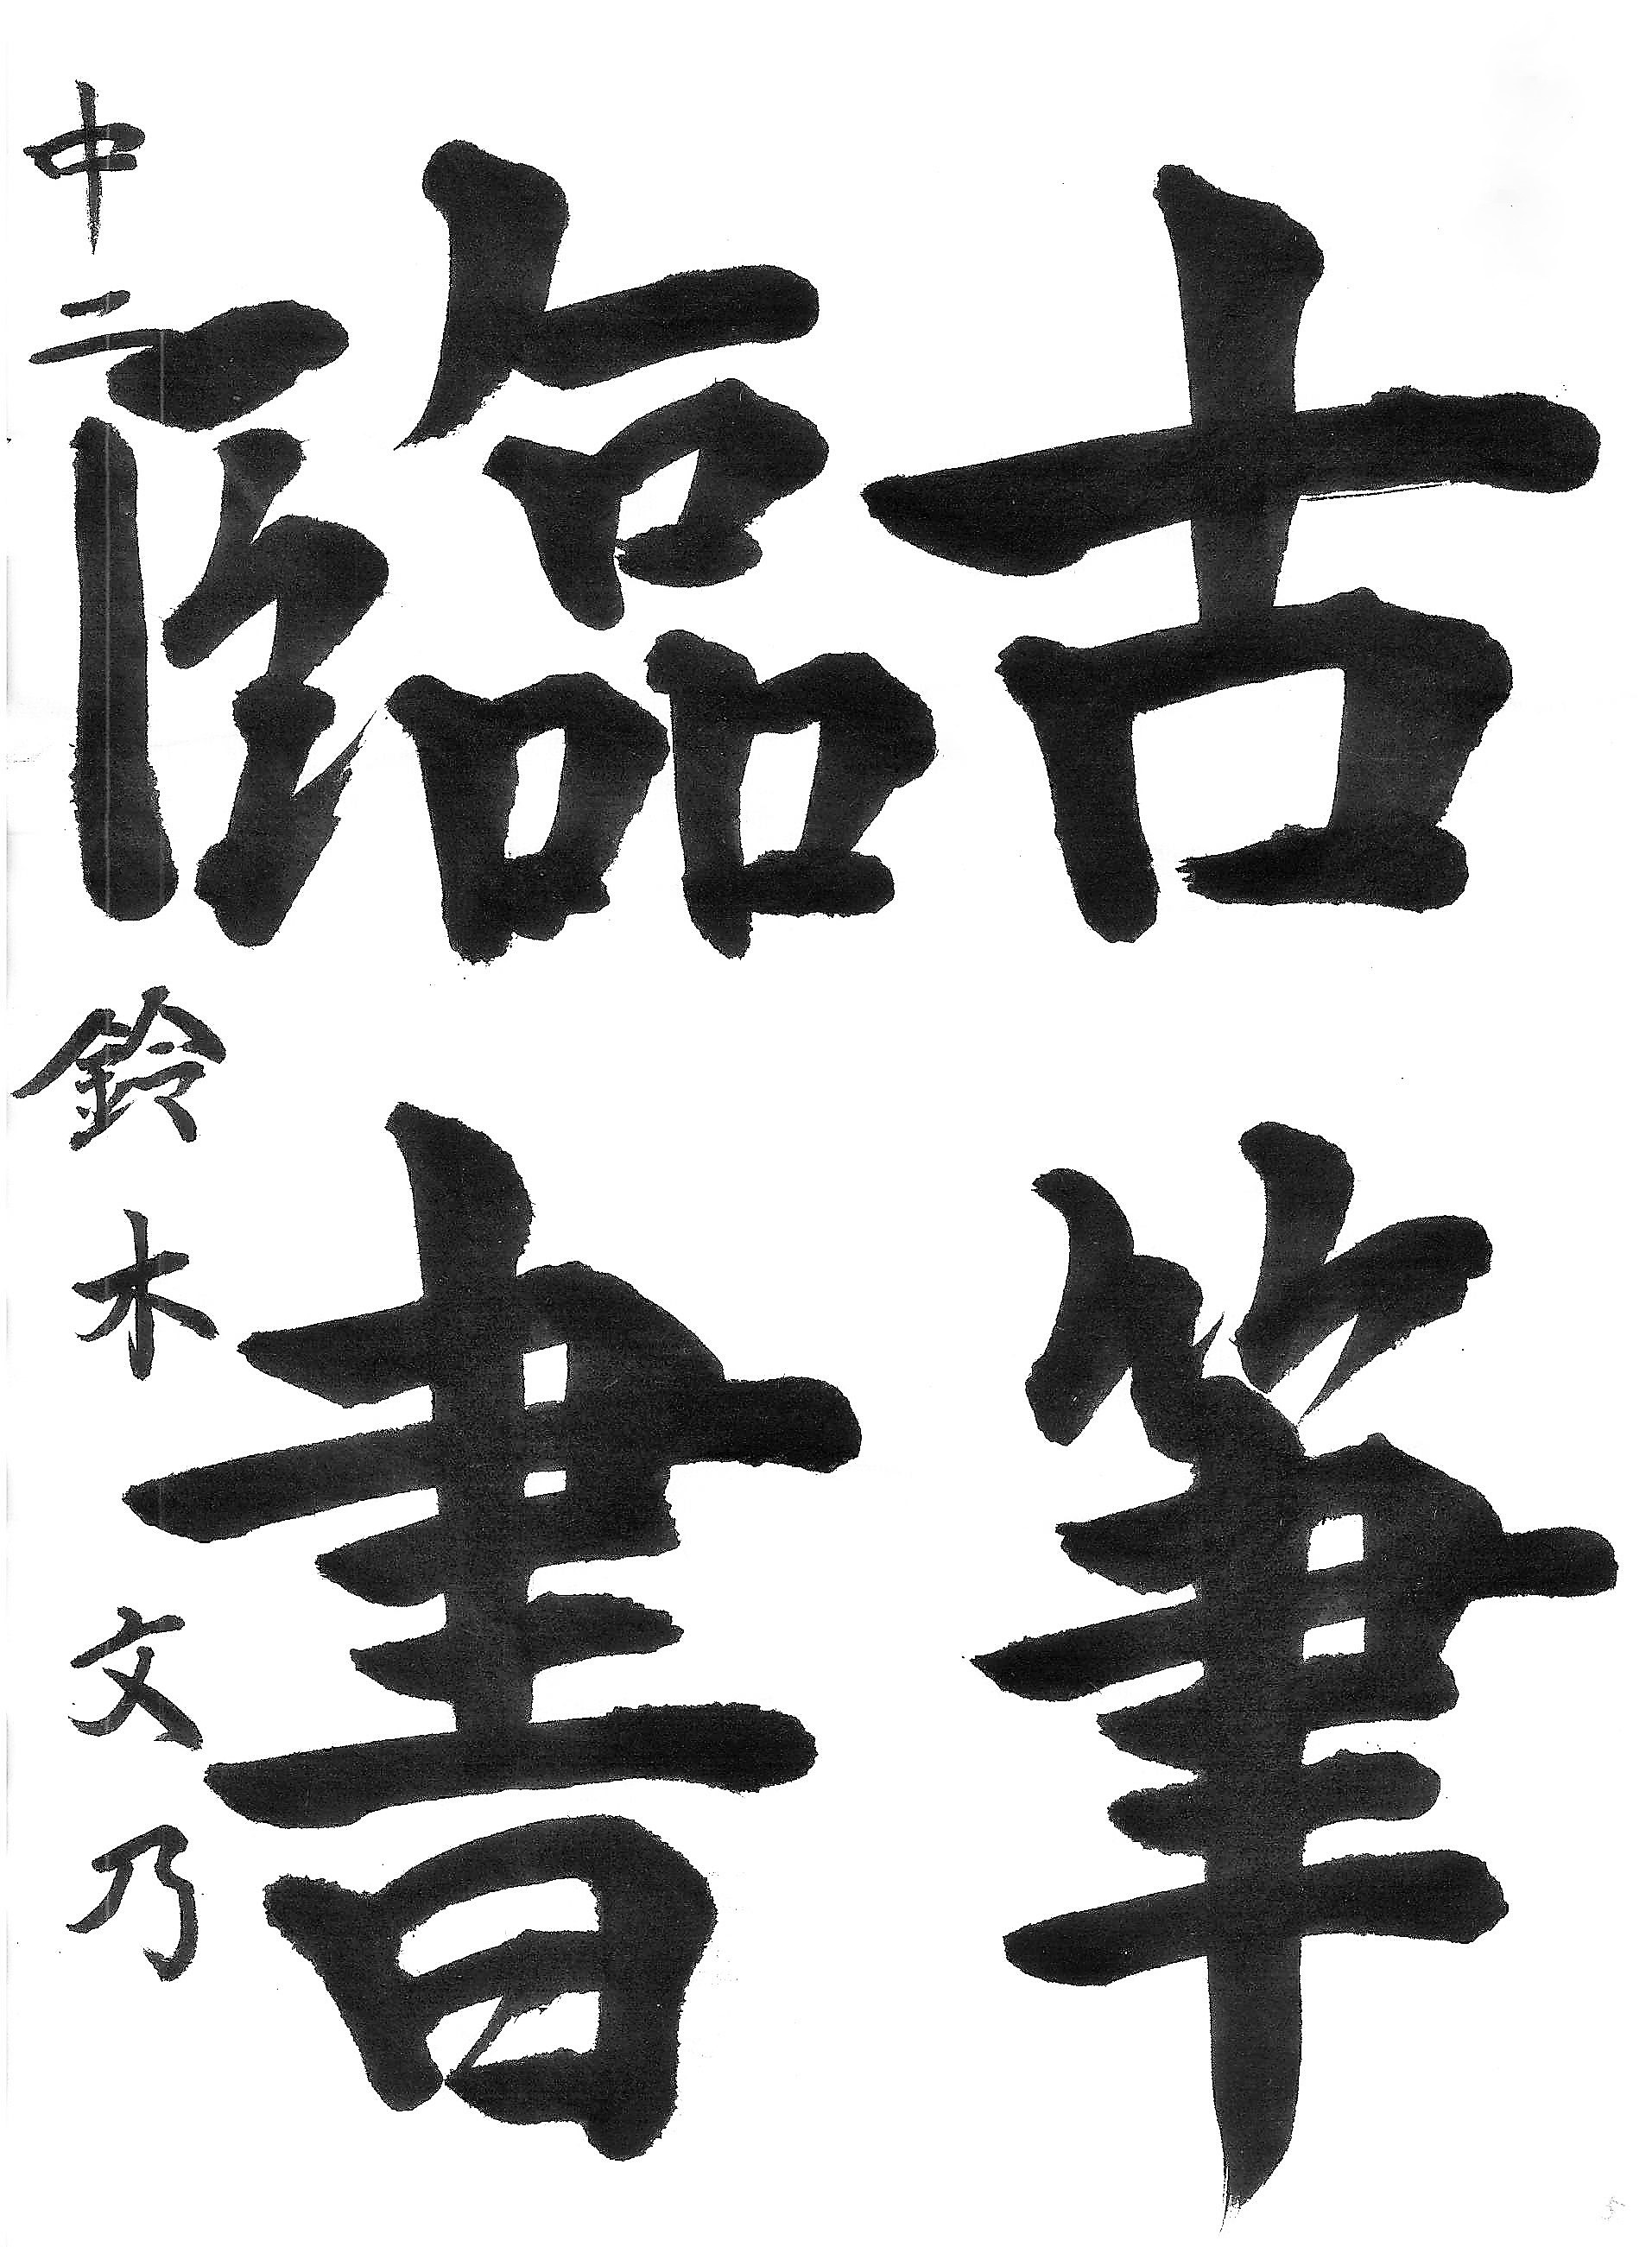 古筆
臨書
中二 鈴木文乃